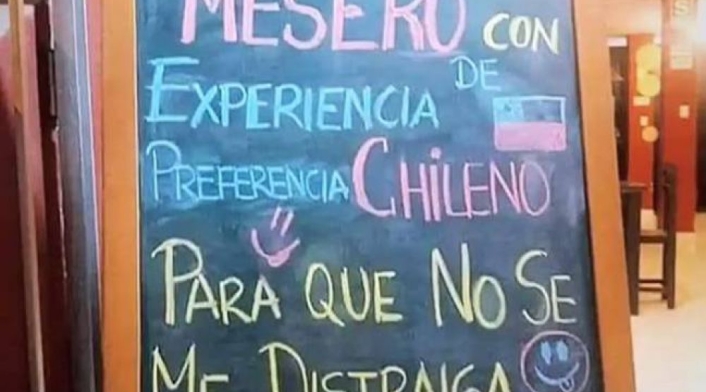 MESERO CON
EXPERIENCIA DE
PREFERENCIA CHILENO
PARA QUE NO SE
ME DISTRAIGA